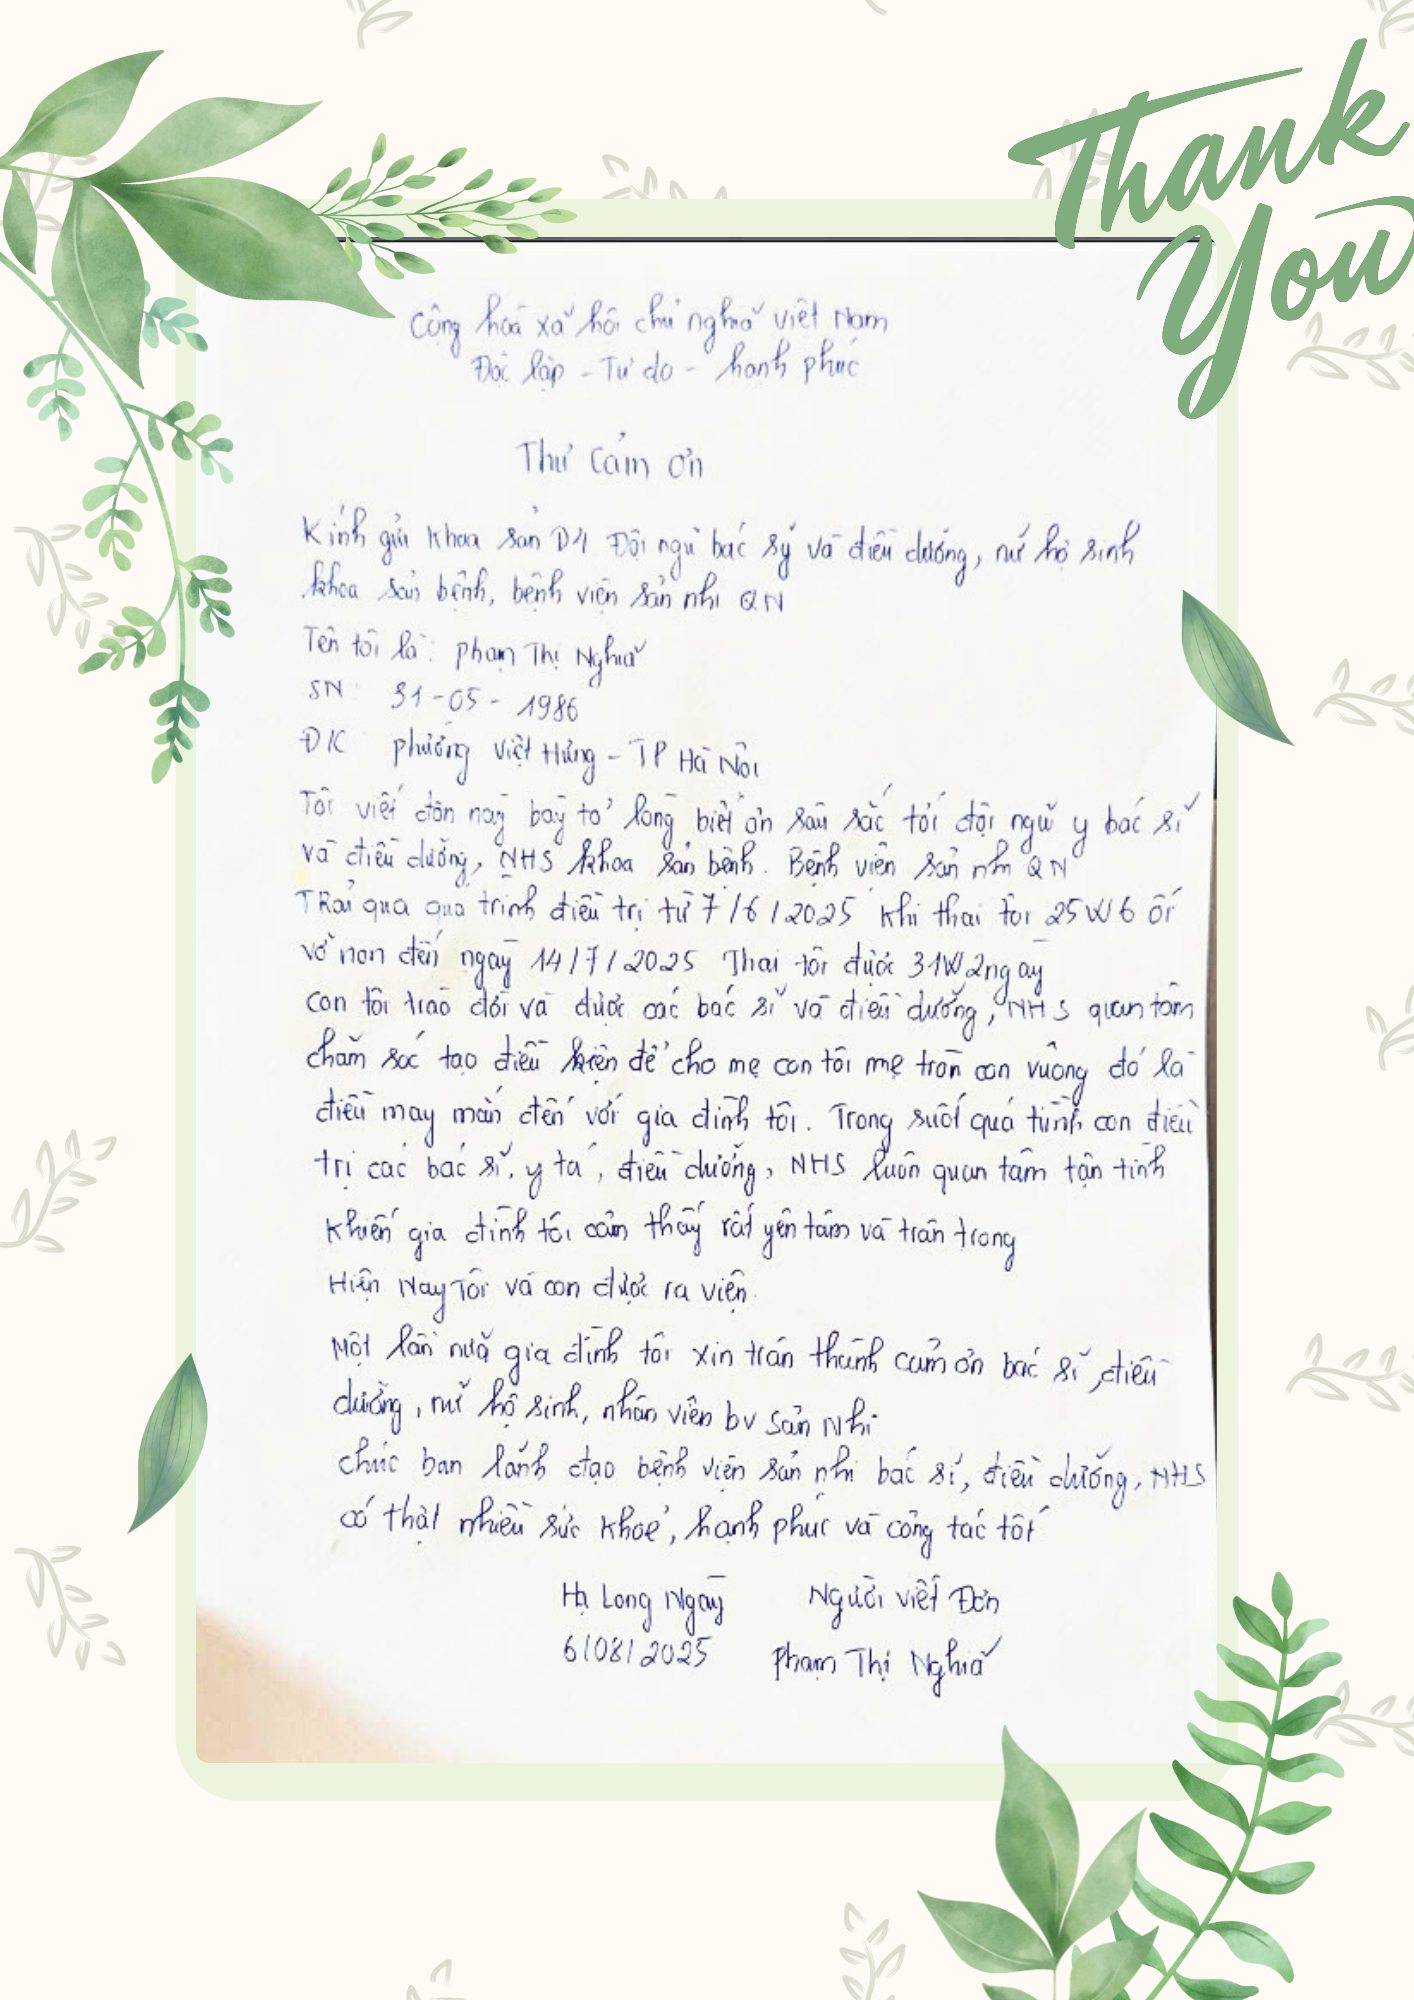 Thank
You
Cộng hoà xã hội chủ nghĩa việt Nam
Độc lập - Tự do - hạnh phúc
Thư Cảm ơn
Kính gửi Khoa sản D4 Đội ngũ bác sỹ và điều dưỡng, nữ hộ sinh
khoa sản bệnh, bệnh viện sản nhi QN
Tên tôi là: Phạm Thị Nghĩa
SN: 31-05-1986
Đ/C: phường việt Hưng - TP Hà Nội
Tôi viết đơn này bày tỏ lòng biết ơn sâu sắc tới đội ngũ y bác sĩ
và điều dưỡng, NHS khoa sản bệnh. Bệnh viện sản nhi QN
TRải qua quá trình điều trị từ 7/6/2025 khi thai tôi 25W6 ối
vỡ non đến ngày 14/7/2025 Thai tôi được 31W2ngày
con tôi trào đời và được các bác sĩ và điều dưỡng, NHS quan tâm
chăm sóc tạo điều kiện để cho mẹ con tôi mẹ tròn con vuông đó là
điều may mắn đến với gia đình tôi. Trong suốt quá trình con điều
trị các bác sĩ, y tá, điều dưỡng, NHS luôn quan tâm tận tình
khiến gia đình tôi cảm thấy rất yên tâm và trân trọng
Hiện Nay Tôi và con được ra viện.
Một lần nữa gia đình tôi xin trân thành cảm ơn bác sĩ, điều
dưỡng, nữ hộ sinh, nhân viên bv sản Nhi
chúc ban lãnh đạo bệnh viện sản nhi bác sĩ, điều dưỡng, NHS
có thật nhiều sức khoẻ, hạnh phúc và công tác tốt
Hạ Long Ngày Người viết Đơn
6/08/2025 Phạm Thị Nghĩa